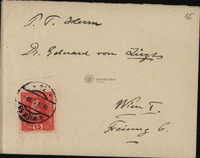 16
P. T. Herrn
Dr. Eduard von Liszt
Wien I.
Freiung 6.
15